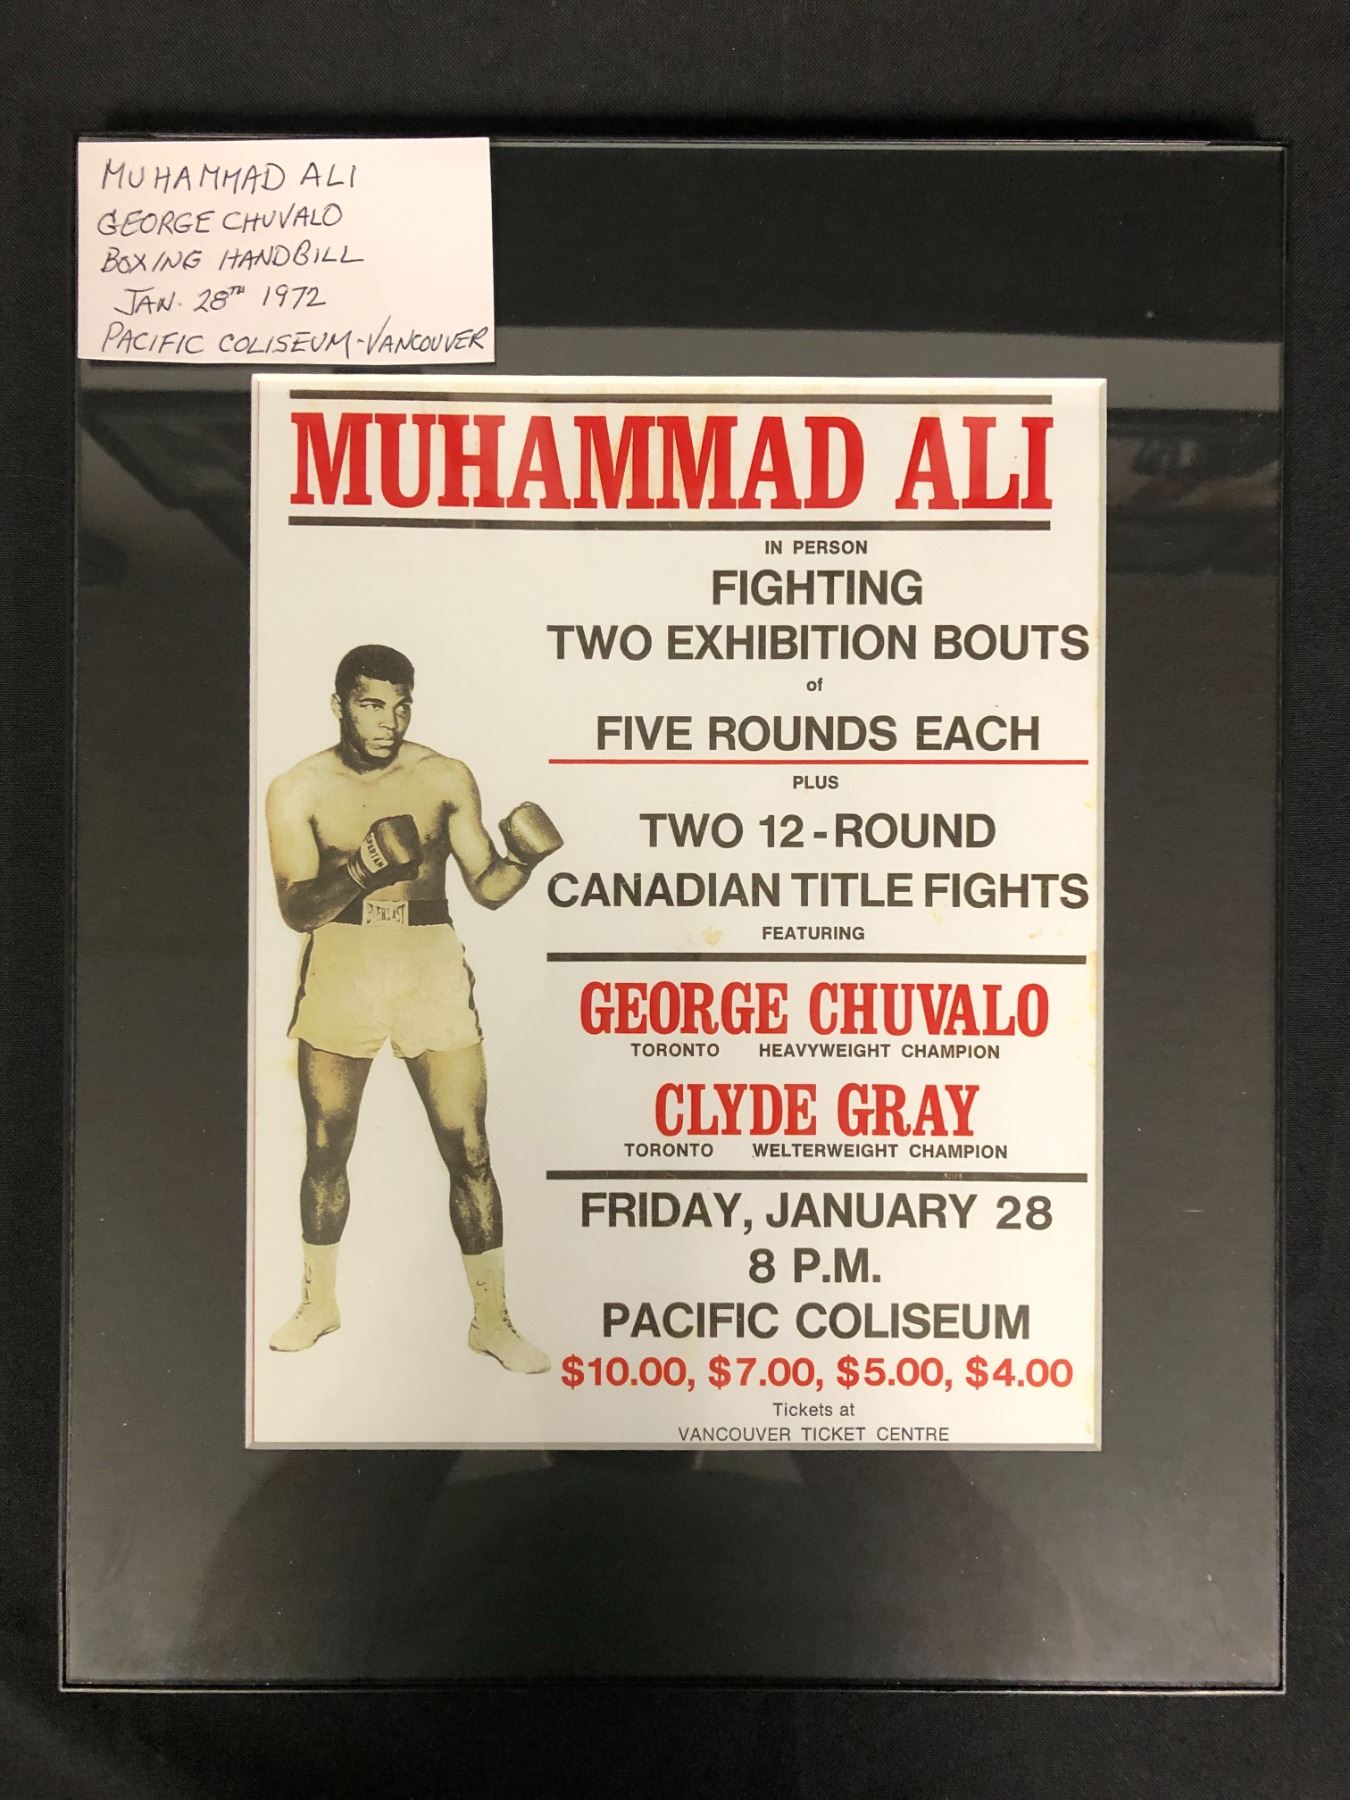 MUHAMMAD ALI
GEORGE CHUVALO
BOXING HANDBILL
JAN. 28TH 1972
PACIFIC COLISEUM-VANCOUVER
MUHAMMAD ALI
IN PERSON
FIGHTING
TWO EXHIBITION BOUTS
of
FIVE ROUNDS EACH
PLUS
TWO 12-ROUND
CANADIAN TITLE FIGHTS
FEATURING
GEORGE CHUVALO
TORONTO HEAVYWEIGHT CHAMPION
CLYDE GRAY
TORONTO WELTERWEIGHT CHAMPION
FRIDAY, JANUARY 28
8 P.M.
PACIFIC COLISEUM
$10.00, $7.00, $5.00, $4.00
Tickets at
VANCOUVER TICKET CENTRE
SPARTAN
EVERLAST